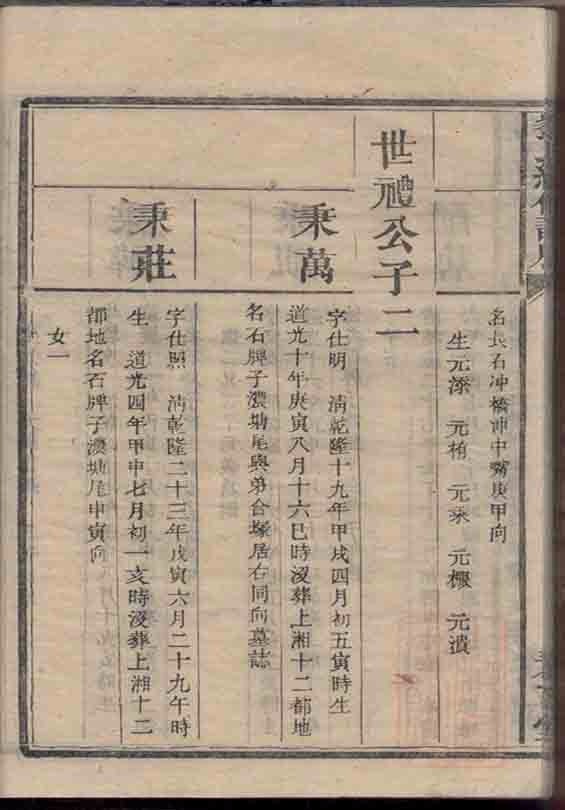 名長石冲橋冲中嘴庚甲向
生元添 元柏 元桑 元檁 元濆
世禮公子二
秉萬
字仕明 淸乾隆十九年甲戌四月初五寅時生
道光十年庚寅八月十六巳時沒葬上湘十二都地
名石牌子濃塘尾與弟合塚居右同向墓誌
秉莊
字仕照 淸乾隆二十三年戊寅六月二十九午時
生 道光四年甲申七月初一亥時沒葬上湘十二
都地名石牌子濃塘尾申寅向
女一